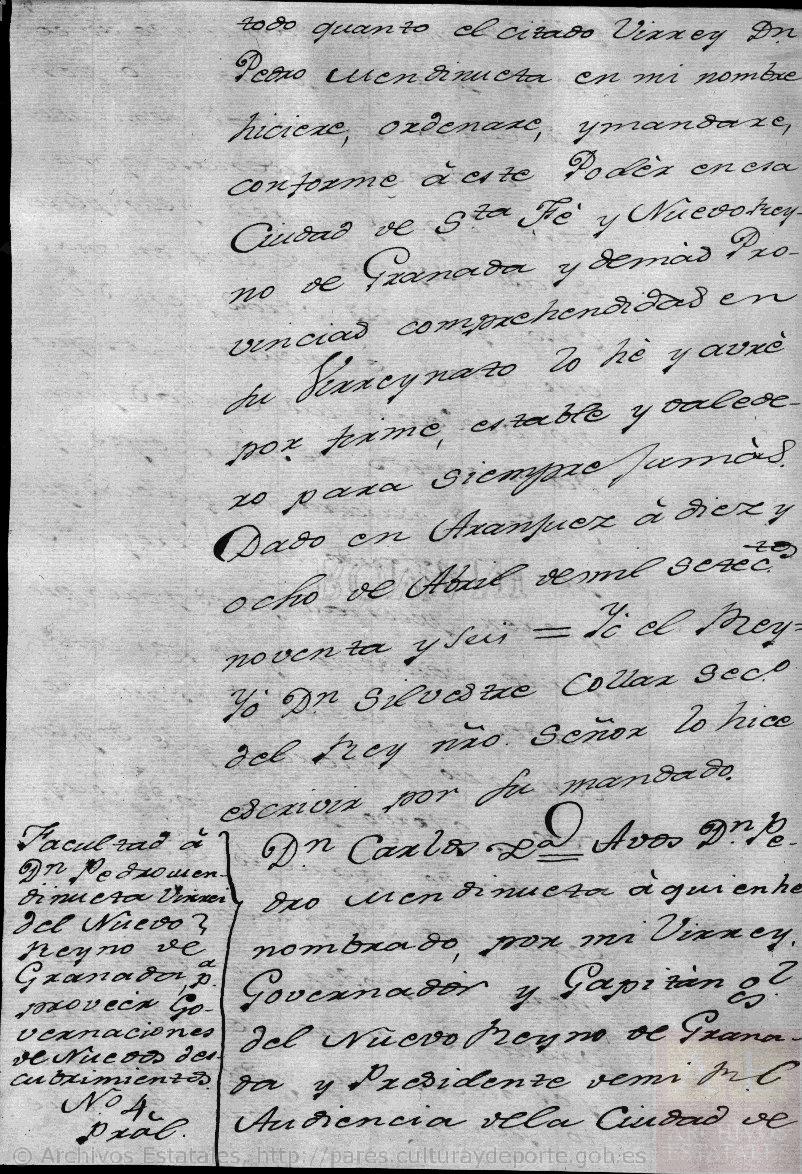 todo quanto el citado Virrey Dn.
Pedro Mendinueta en mi nombre
hiciere, ordenare, y mandare,
conforme à este Podèr en esa
Ciudad de Sta. Fè y Nuevo Rey-
no de Granada y demàs Pro-
vincias comprehendidas en
su Virreynato lo hè y avrè
por firme, estable y valede-
ro para siempre Jamàs.
Dado en Aranjuez à diez y
ocho de Abril de mil setectos.
noventa y seis = Yò el Rey =
Yò Dn Silvestre Collar Seco.
del Rey nro. Señor lo hice
escrivir por su mandado.
Facultad à
Dn Pedro Men-
dinueta Virrei
del Nuevo
Reyno de
Granada, pa.
proveèr Go-
vernaciones
de Nuevos des-
cubrimientos.
No 4
Pral.
Dn Carlos &a Avos Dn. Pe-
dro Mendinueta à quien he
nombrado, por mi Virrey,
Governadòr y Capitàn Gl
del Nuevo Reyno de Grana-
da y Presidente de mi Rl
Audiencia de la Ciudad de
© Archivos Estatales, http://pares.culturaydeporte.gob.es